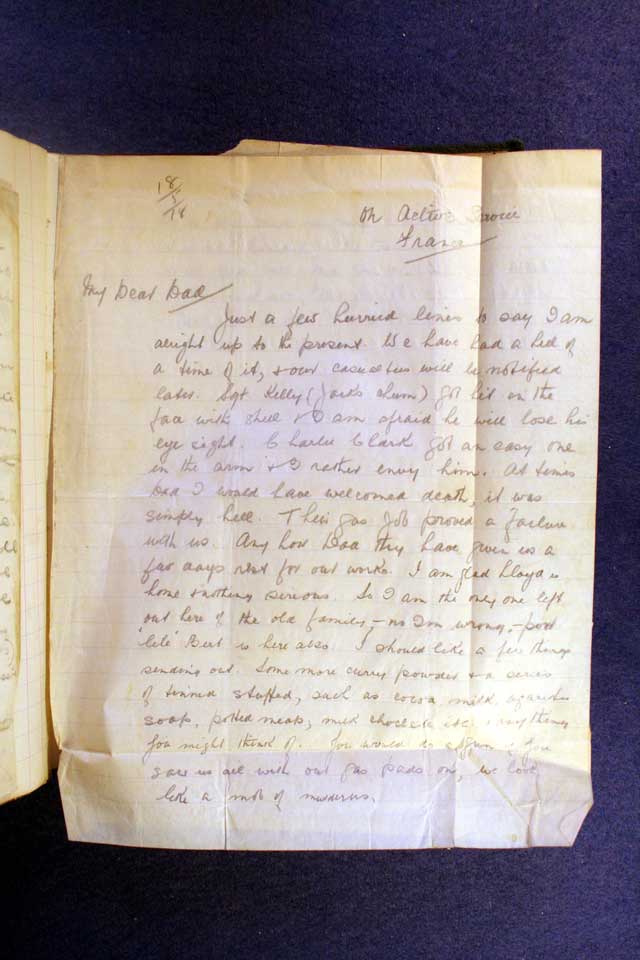 18/5/18
On Active Service
France
My Dear Dad
Just a few hurried lines to say I am
alright up to the present. We have had a hell of
a time of it, & our casualties will be notified
later. Sgt Kelly (Jack's chum) got hit in the
face with shell & I am afraid he will lose his
eye sight. Charlie Clark got an easy one
in the arm & I rather envy him. At times
Dad I would have welcomed death, it was
simply hell. Their gas job proved a failure
with us. Any how Dad they have given us a
few days rest for our work. I am glad Lloyd is
home & nothing serious. So I am the only one left
out here of the old family, - no I'm wrong, - poor
'lile' Bert is here also. I should like a few things
sending out. Some more curry powder & a series
of tinned stuffed, such as cocoa, milk,
soap, potted meats, milk chocolate etc & any thing
you might think of. You would if you
saw us all with our gas pads on, we look
like a mob of murderers.